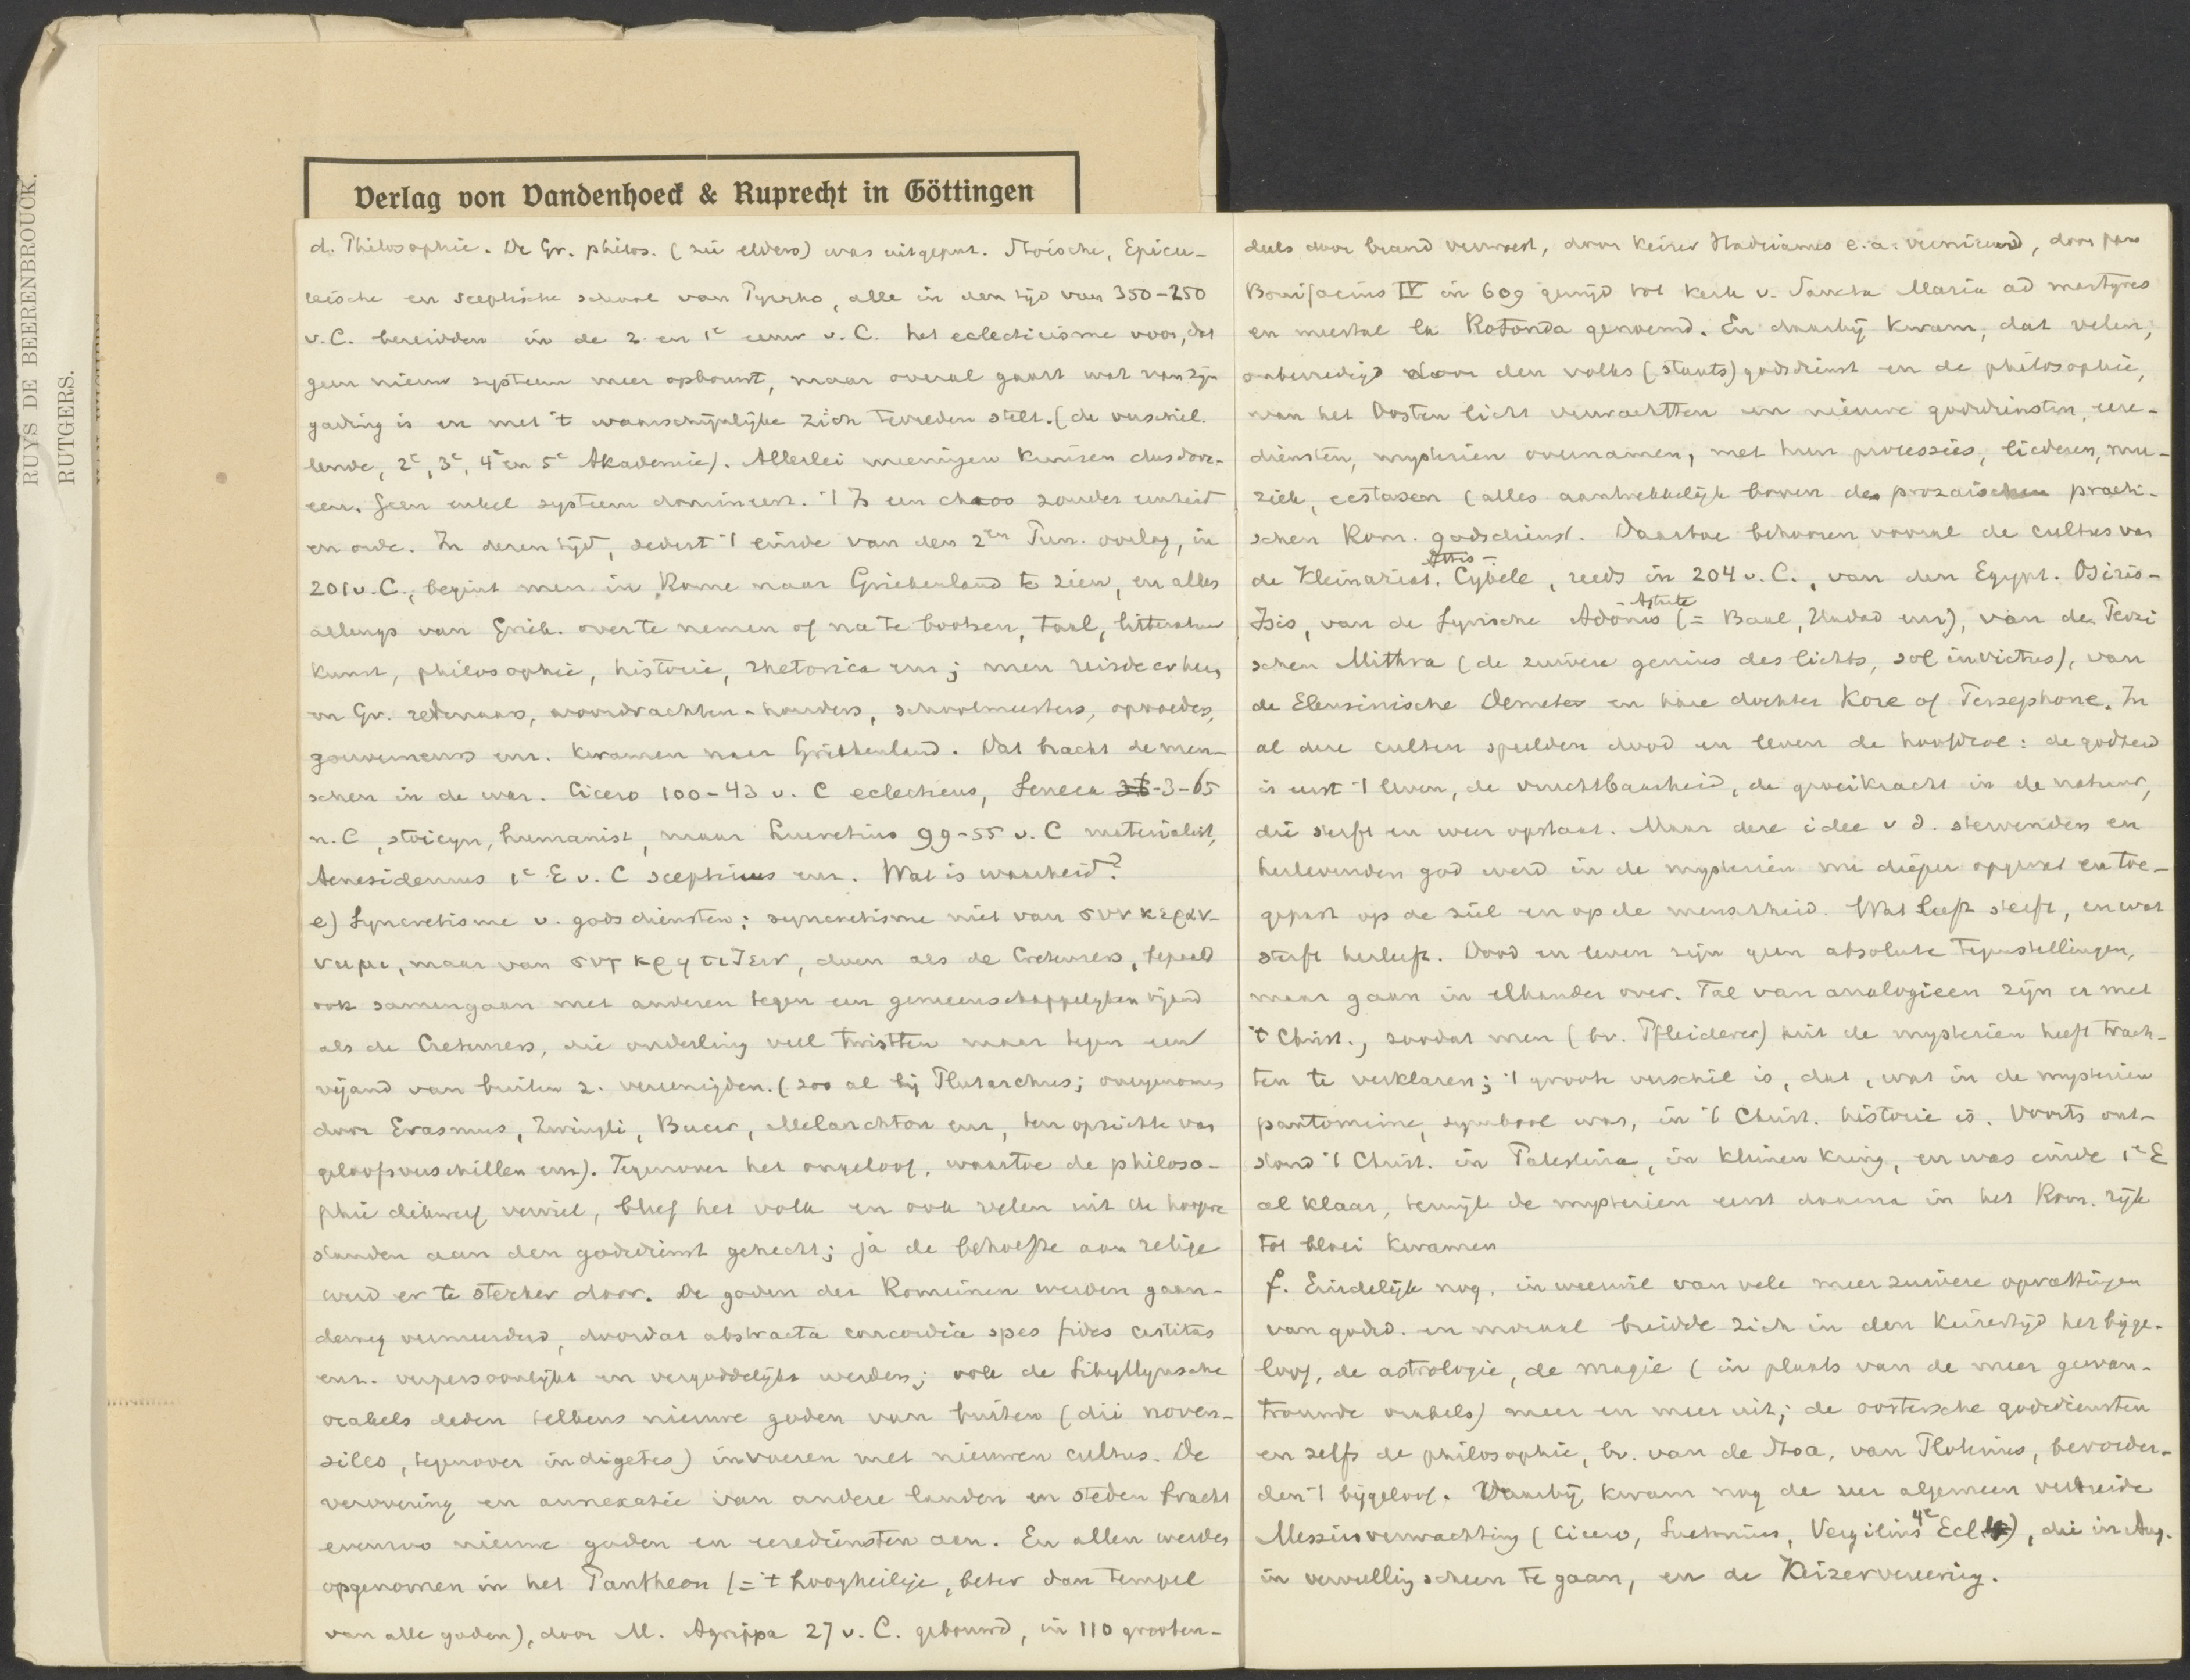 RUYS DE BEERENBROUCK.
RUTGERS.
Verlag von Vandenhoeck & Ruprecht in Göttingen
d. Philosophie. De Gr. philos. (zie elders) was uitgeput. Stoische, Epicu-
reische en sceptische school van Pyrrho, alle in den tijd van 350-250
v. C. bereidden in de 2 en 1e eeuw v. C. het eclecticisme voor, dat
geen nieuw systeem meer opbouwt, maar overal gaart wat van zijn
gading is en met 't waarschijnlijke zich tevreden stelt. (de verschil-
lende, 2e, 3e, 4e en 5e Akademie). Allerlei meeningen kruisen dus door-
een. Geen enkel systeem domineert. 't Is een chaos zonder eenheid
en orde. In dezen tijd, sedert 't einde van den 2en Pun. oorlog, in
201 v. C., begint men in Rome naar Griekenland te zien, en alles
allengs van Griek. over te nemen of na te bootsen, taal, litteratuur
kunst, philosophie, historie, rhetorica enz; men reisde erheen
en Gr. redenaars, voordrachten-houders, schoolmeesters, opvoeders,
gouverneurs enz. kwamen naar Griekenland. Dat bracht de men-
schen in de war. Cicero 100-43 v. C eclecticus, Seneca 3-65
n. C, stoicyn, humanist, maar Lucretius 99-55 v. C materialist,
Aenesidemus 1e E v. C scepticus enz. Wat is waarheid?
e) Syncretisme v. godsdiensten: syncretisme niet van συν κεραν-
νυμι, maar van συγκρητιζειν, doen als de Cretensers,
ook samengaan met anderen tegen een gemeenschappelyken vijand
als de Cretensers, die onderling veel twistten maar tegen een
vijand van buiten z. vereenigden. (zoo al bij Plutarchus; overgenomen
door Erasmus, Zwingli, Bucer, Melanchton enz, ten opzichte van
geloofsverschillen enz). Tegenover het ongeloof, waartoe de philoso-
phie dikwerf verviel, bleef het volk en ook velen uit de hoogere
standen aan den godsdienst gehecht; ja de behoefte aan religie
werd er te sterker door. De goden der Romeinen werden gaan-
deweg vermeerderd, doordat abstracta concordia spes fides castitas
enz. verpersoonlijkt en vergoddelijkt werden; ook de Sibyllynsche
orakels deden telkens nieuwe goden van buiten (dii noven-
siles, tegenover indigetes) invoeren met nieuwen cultus. De
verovering en annexatie van andere landen en steden bracht
evenzoo nieuwe goden en eerediensten aan. En allen werden
opgenomen in het Pantheon (= 't hoogheilige, beter dan tempel
van alle goden), door M. Agrippa 27 v. C. gebouwd, in 110 grooten-
deels door brand verwoest, door keizer Hadrianus e. a. vernieuwd, door paus
Bonifacius IV in 609 gewijd tot kerk v. Sancta Maria ad martyres
en meestal la Rotonda genoemd. En daarbij kwam, dat velen,
onbevredigd door den volks (staats) godsdienst en de philosophie,
van het Oosten licht verwachtten en nieuwe godsdiensten, eere-
diensten, mysteriën overnamen, met hun processies, liederen, mu-
ziek, ecstasen (alles aantrekkelijk boven den prozaischen practi-
schen Rom. godsdienst. Daartoe behooren vooral de cultus van
de Kleinaziat. Attis-Cybele, reeds in 204 v. C., van den Egypt. Osiris-
Isis, van de Syrische Adonis-Astarte (= Baal, Hadad enz), van de Perzi
schen Mithra (de zuivere genius des lichts, sol invictus), van
de Eleusinische Demeter en hare dochter Kore of Persephone. In
al deze culten speelden dood en leven de hoofdrol: de godheid
is eerst 't leven, de vruchtbaarheid, de groeikracht in de natuur,
die sterft en weer opstaat. Maar deze idee v d. stervenden en
herlevenden god werd in de mysteriën nu dieper opgevat en toe-
gepast op de ziel en op de menschheid. Wat leeft sterft, en wat
sterft herleeft. Dood en leven zijn geen absolute tegenstellingen,
maar gaan in elkander over. Tal van analogieen zijn er met
't Christ., zoodat men (bv. Pfleiderer) uit de mysteriën heeft trach-
ten te verklaren; 't groote verschil is, dat, wat in de mysteriën
pantomime, symbool was, in 't Christ. historie is. Voorts ont-
stond 't Christ. in Palestina, in kleinen kring, en was einde 1e E
al klaar, terwijl de mysteriën eerst daarna in het Rom. rijk
tot bloei kwamen
f. Eindelijk nog, in weerwil van vele meer zuivere opvattingen
van godsd. en moraal breidde zich in den keizertijd het bijge-
loof, de astrologie, de magie (in plaats van de meer gewan-
trouwde orakels) meer en meer uit; de oostersche godsdiensten
en zelfs de philosophie, bv. van de Stoa, van Plotinus, bevorder-
den 't bijgeloof. Daarbij kwam nog de zeer algemeen verbreide
Messiasverwachting (Cicero, Suetonius, Vergilius 4e Ecl.), die in Aug.
in vervulling scheen te gaan, en de Keizervereering.